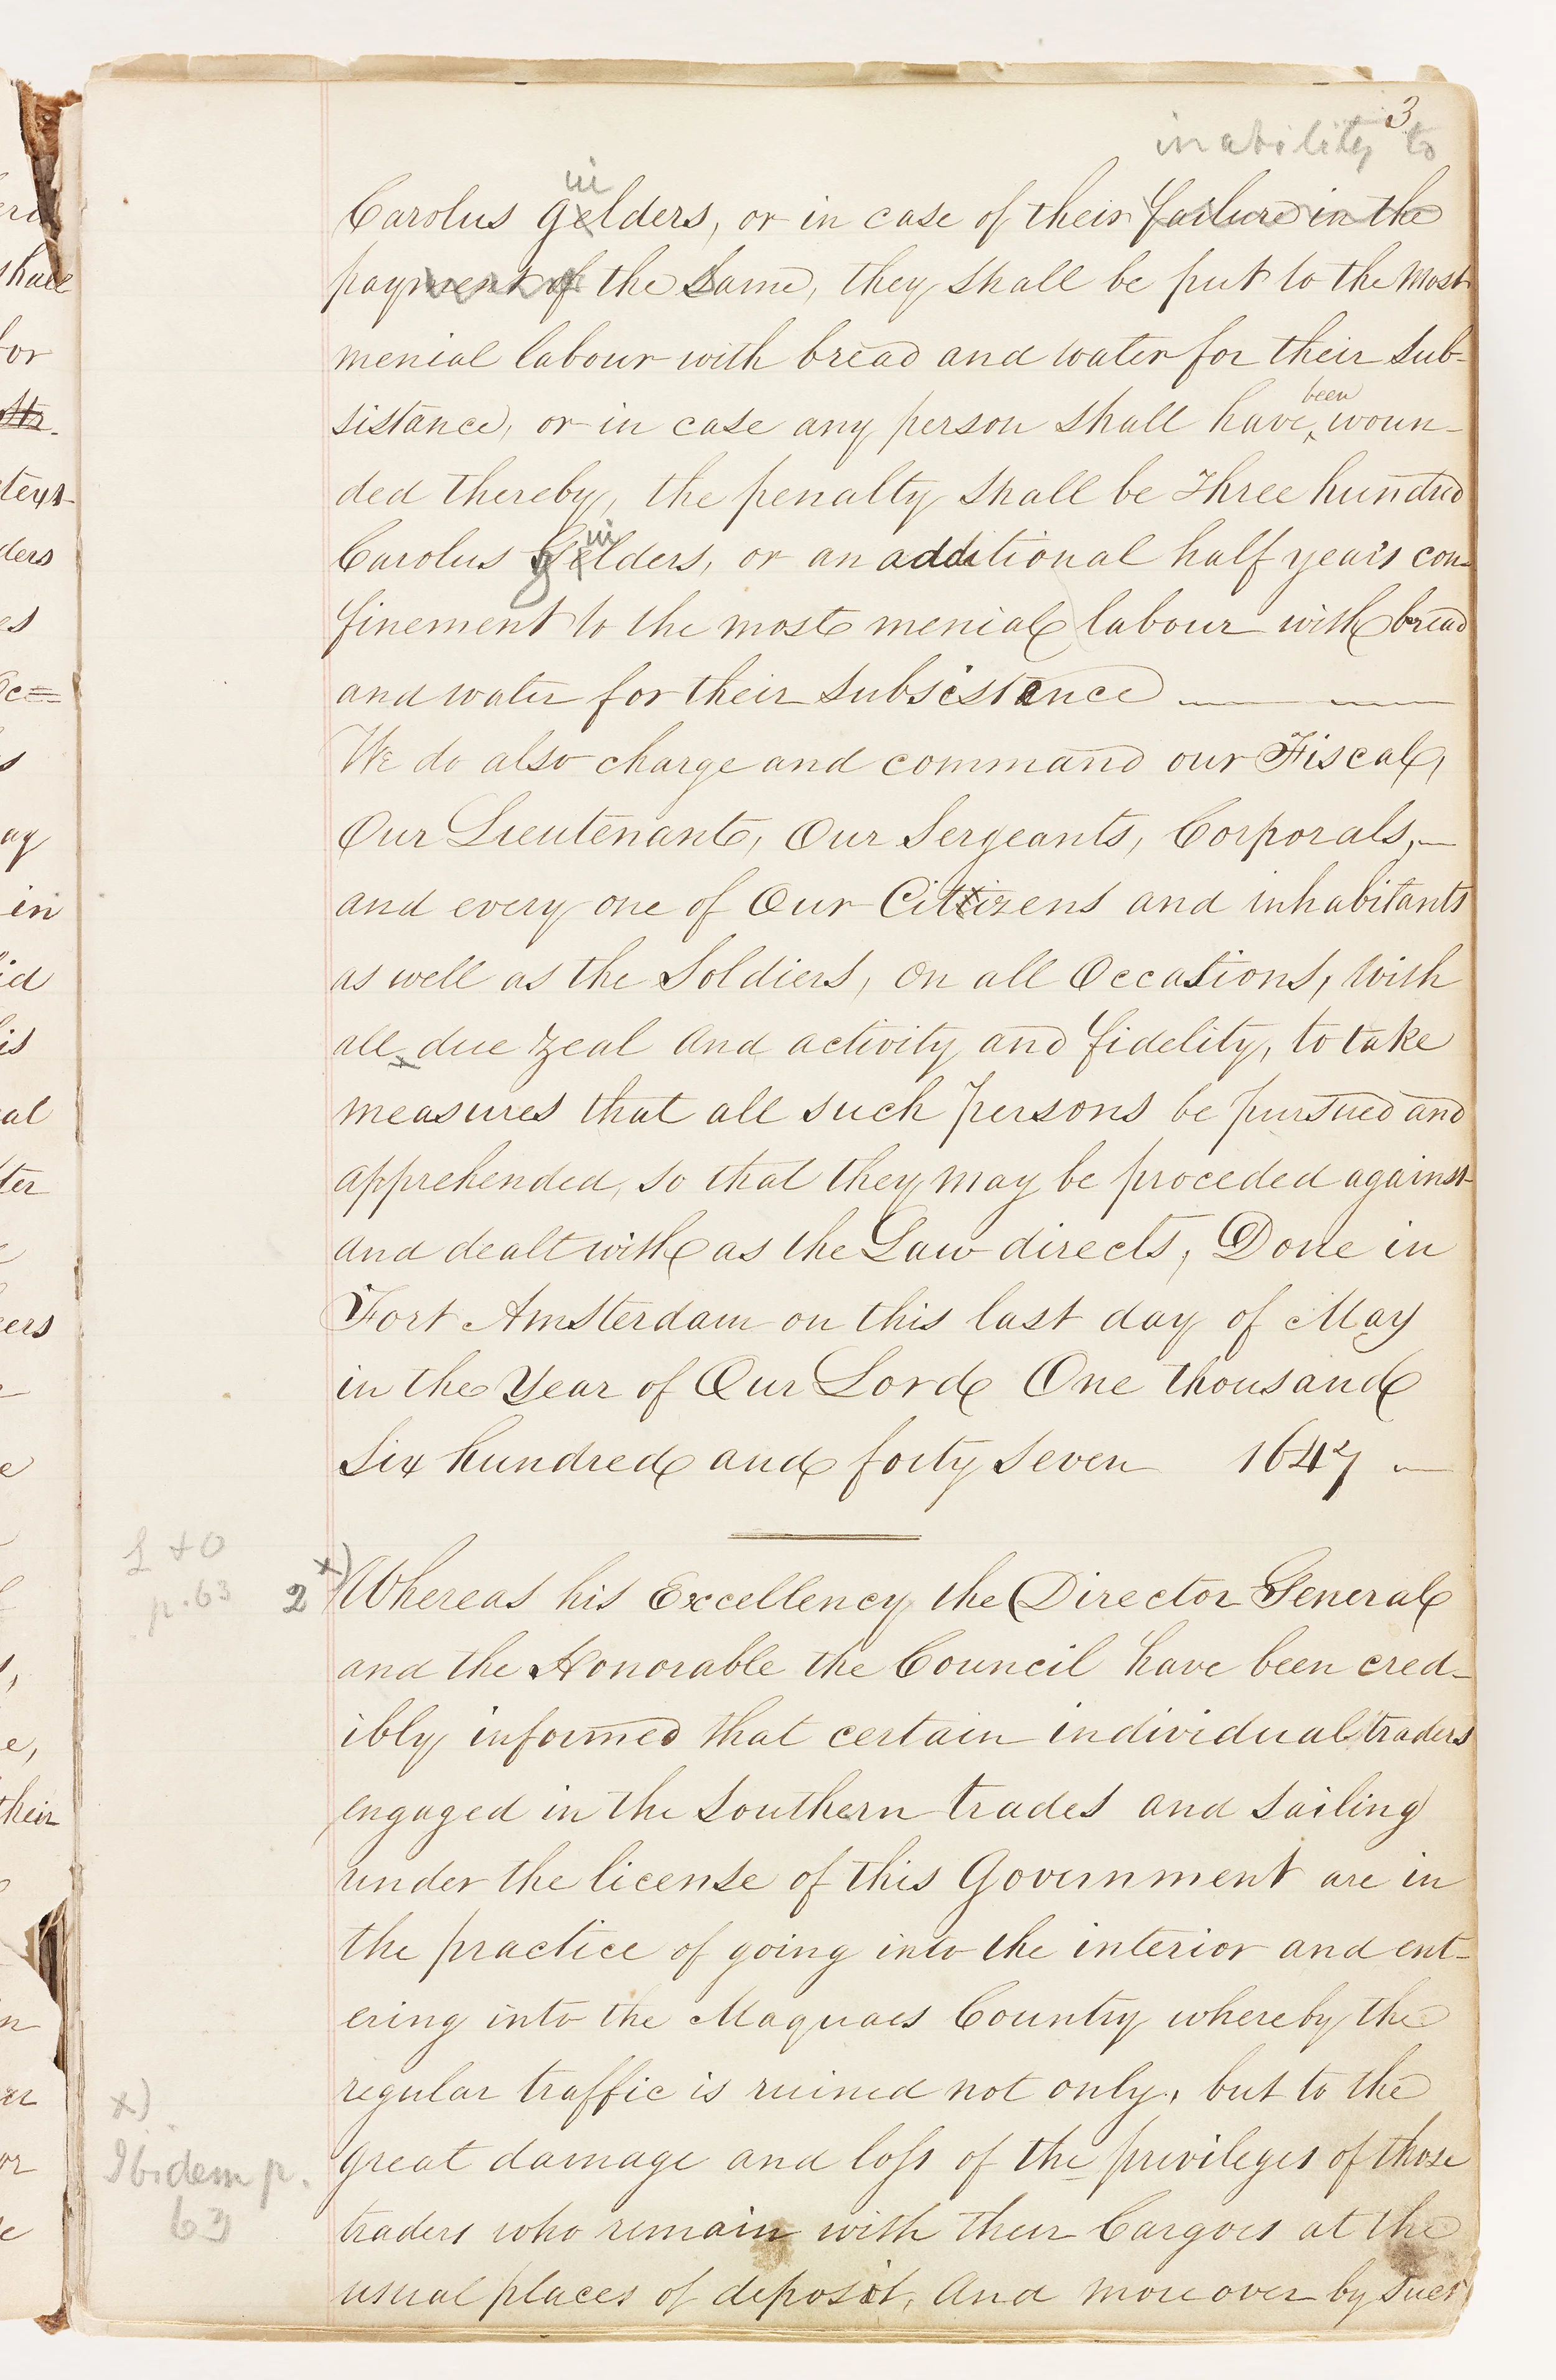 3
inability to
iu
Carolus gelders, or in case of their failure in the
payment of the same, they shall be put to the most
menial labour with bread and water for their sub-
sistance, or in case any person shall have been woun-
ded thereby, the penalty shall be three hundred
iu
Carolus gelders, or an additional half year's con-
finement to the most menial labour with bread
and water for their subsistance
We do also charge and command our Fiscal,
Our Lieutenant, Our Sergeants, Corporals,
and every one of Our Cittizens and inhabitants
as well as the Soldiers, on all Occasions, with
all due zeal and activity and fidelity, to take
measures that all such persons be pursued and
apprehended, so that they may be proceded against
and dealt with as the Law directs, Done in
Fort Amsterdam on this last day of May
in the Year of Our Lord One thousand
Six hundred and forty Seven 1647
L + O
p. 63
2 x) Whereas his Excellency the Director General
and the Honorable the Council have been cred-
ibly informed that certain individual traders
engaged in the Southern trades and sailing
under the license of this Government are in
the practice of going into the interior and ent-
ering into the Maquaes Country whereby the
regular traffic is ruined not only, but to the
great damage and loss of the privileges of those
traders who remain with their Cargoes at the
usual places of deposit, and more over by such
x)
Ibidem p.
63
shall
for
ders
es
s
ay
in
id
is
al
ter
eers
e
e,
their
n
or